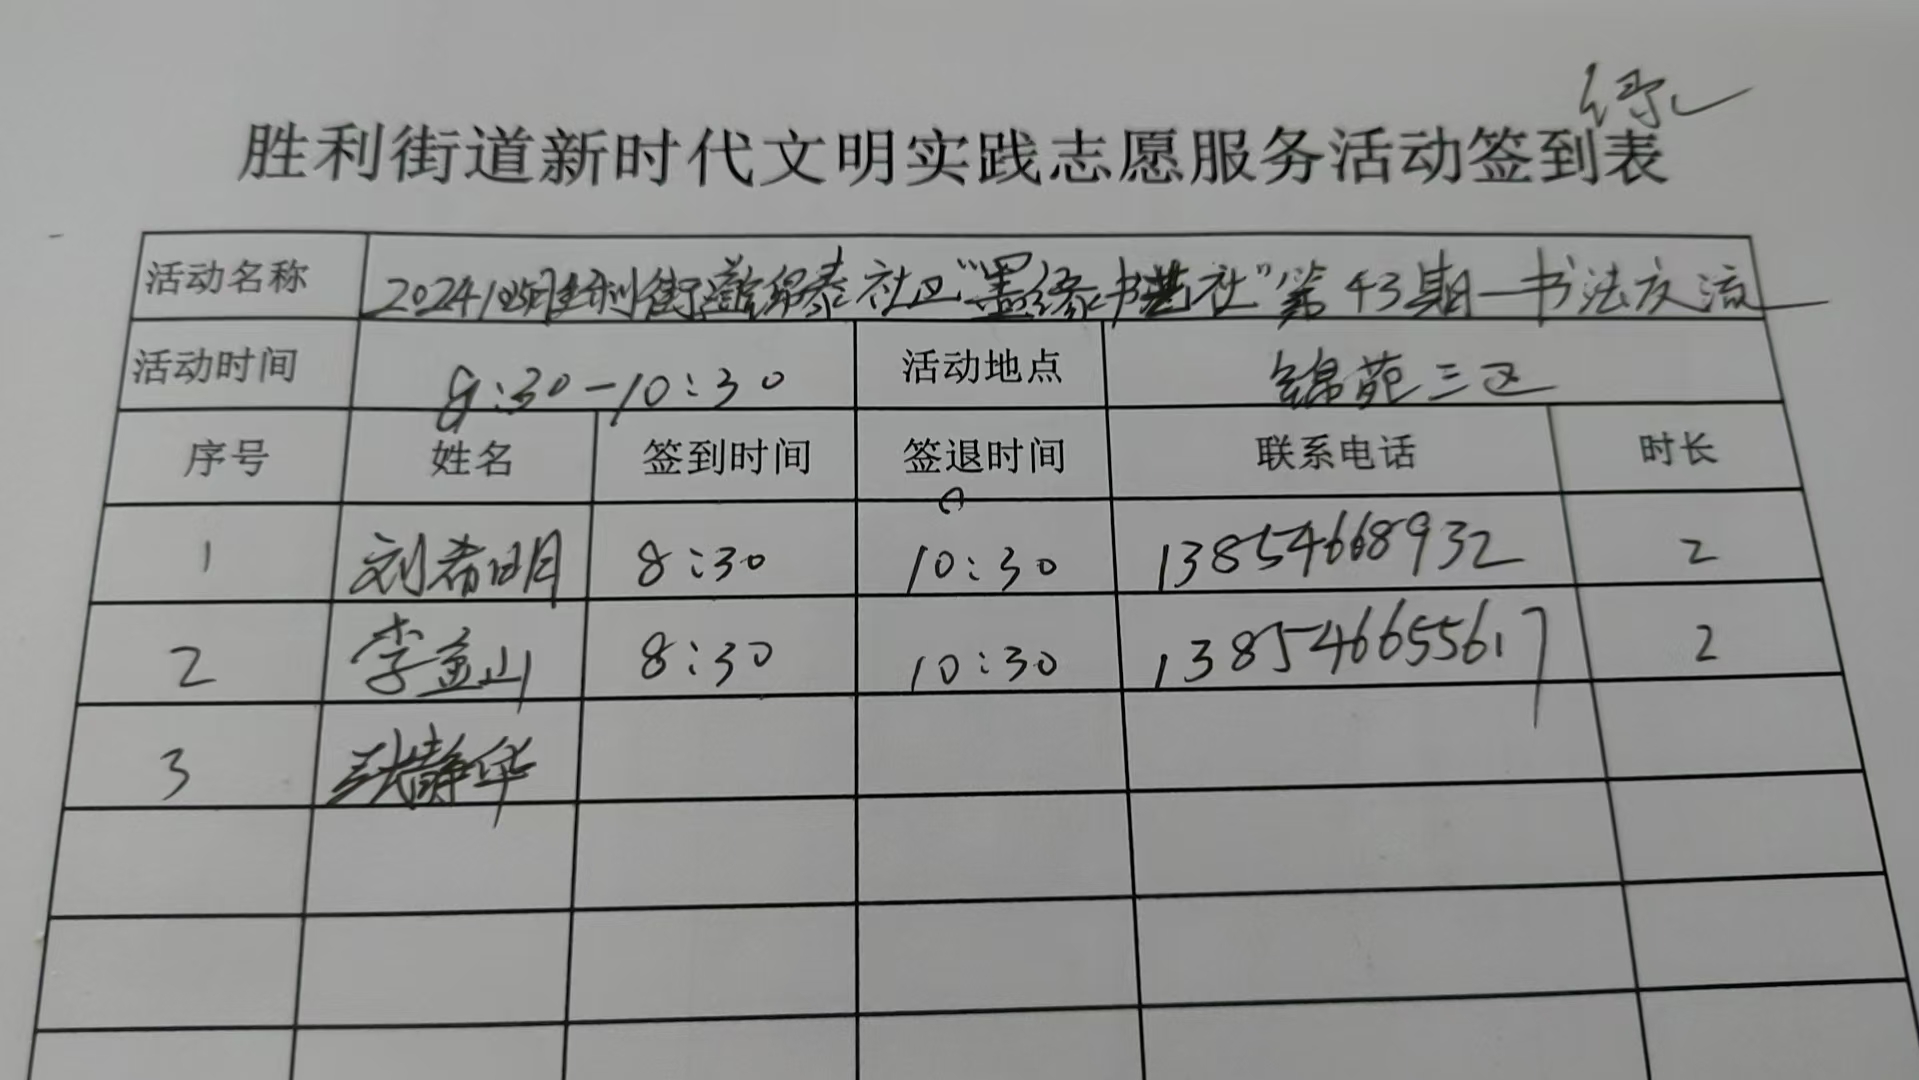 胜利街道新时代文明实践志愿服务活动签到表
活动名称 2024 胜利街道锦泰社区“墨缘书艺社”第43期—书法交流
活动时间 8:30-10:30 活动地点 锦苑三区
序号 姓名 签到时间 签退时间 联系电话 时长
1 刘希明 8:30 10:30 13854668932 2
2 李益山 8:30 10:30 138546655617 2
3 张静华